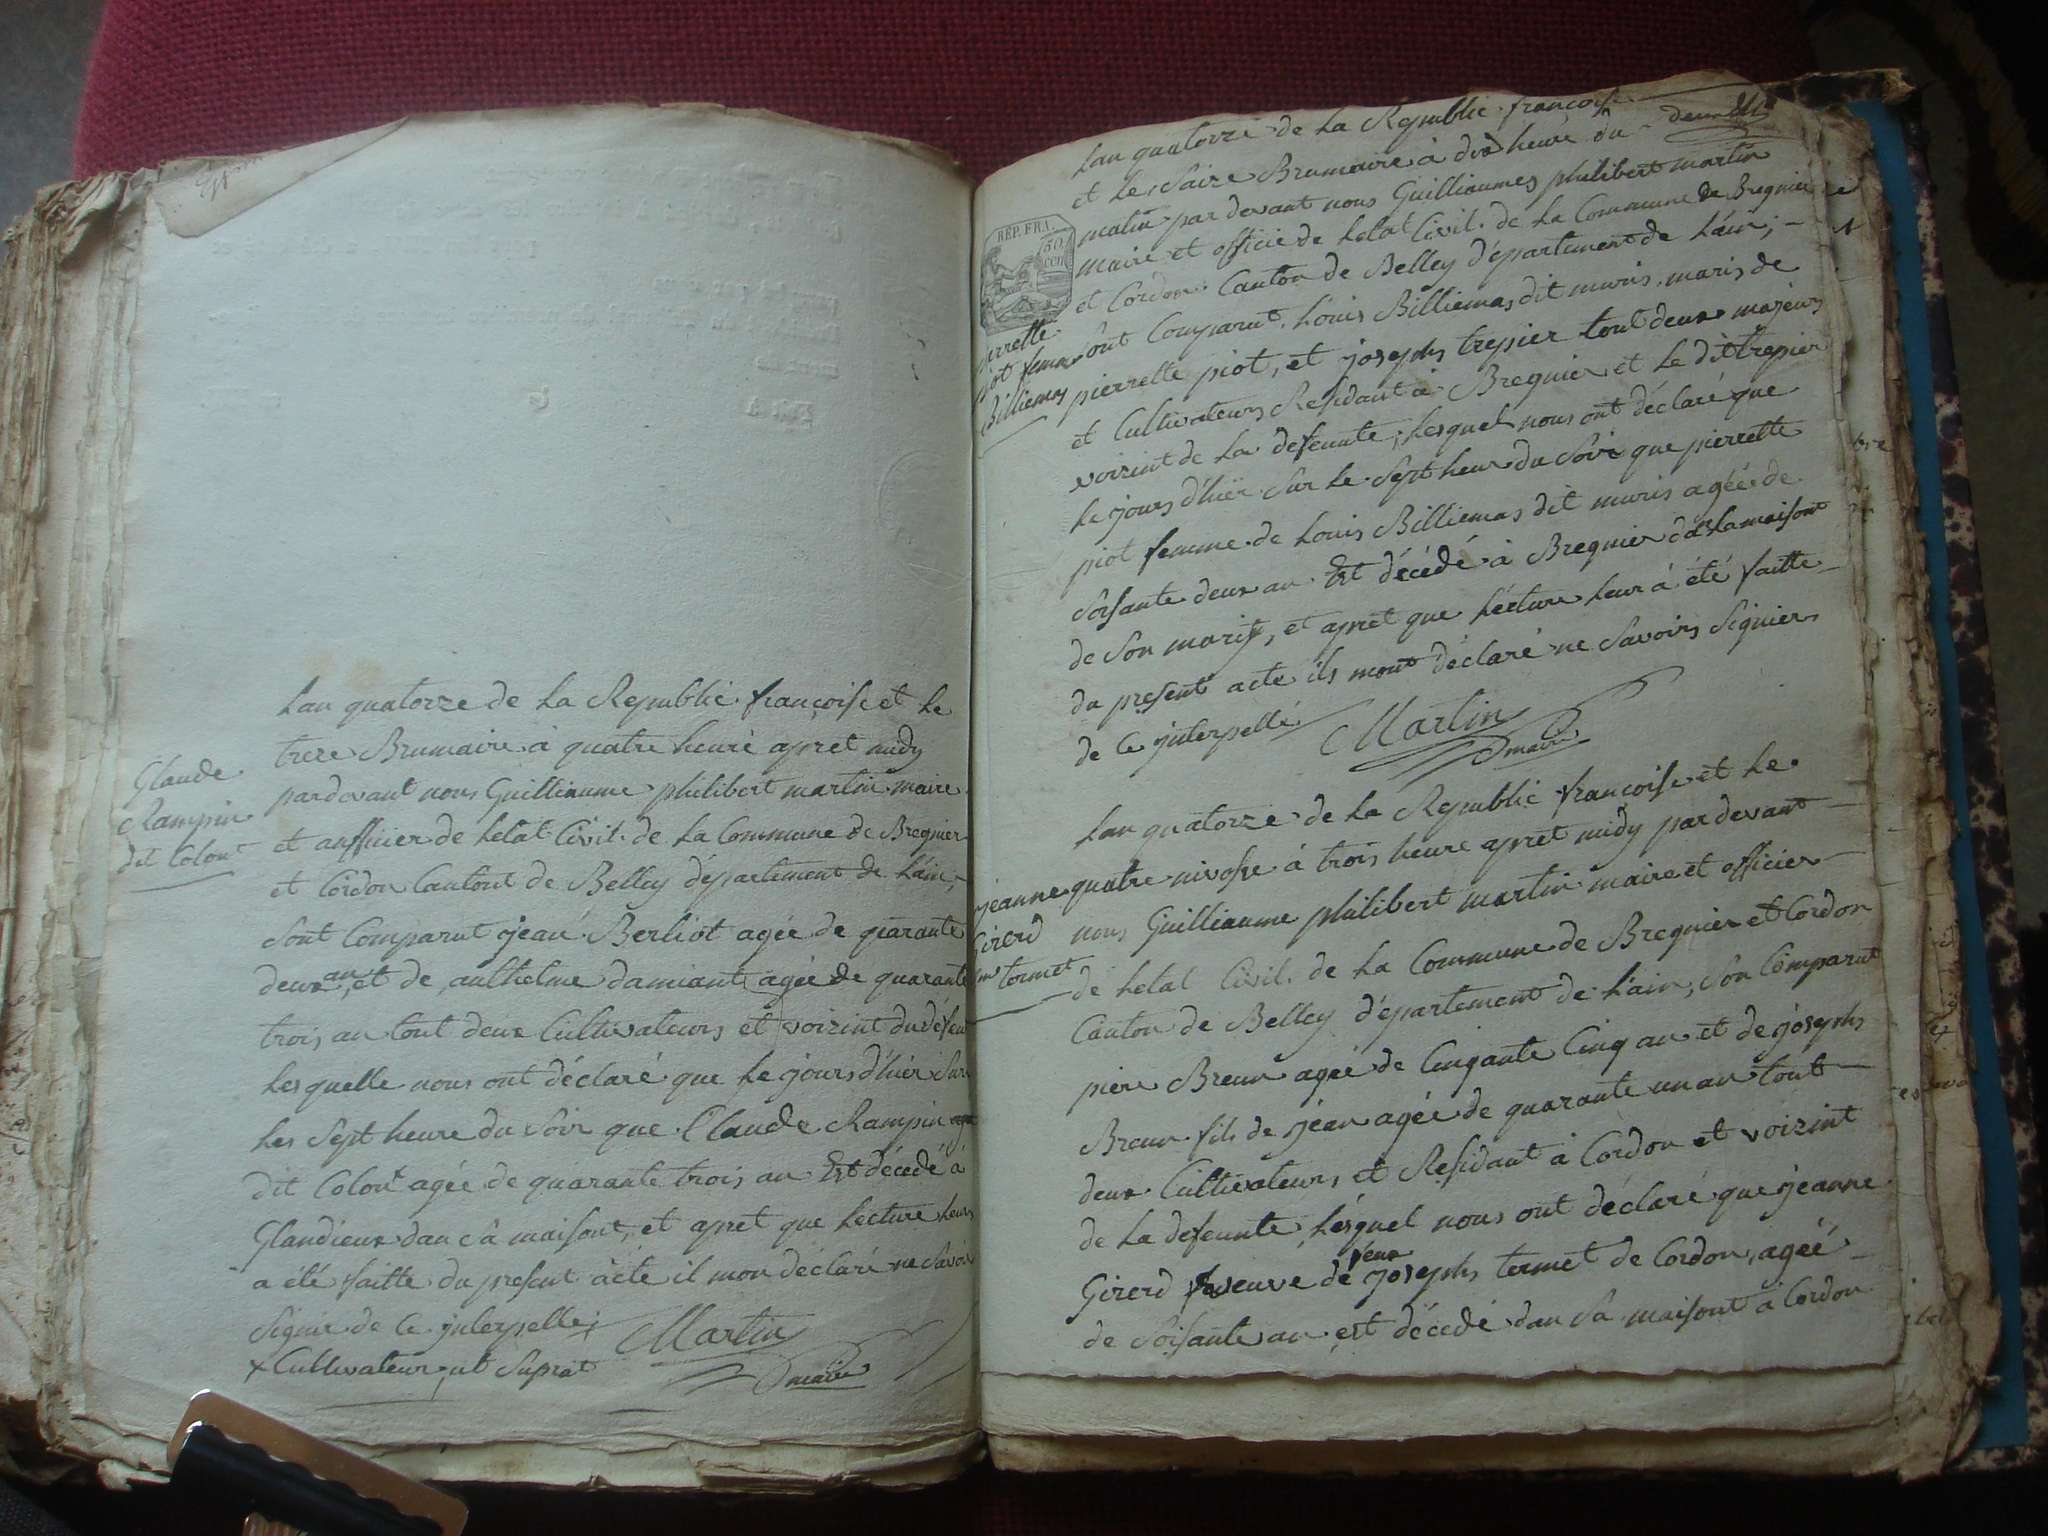 Lan quatorze de La Republic françoise et Le
treze Brumaire à quatre heure apret midy
pardevant nous Guilliaume philibert martin maire
et aufficier de letat Civil de La Commune de Bregnier
et Cordon Cantont de Belley département de Lain,
Sont Comparut jean Berliot agée de quarante
deux an, et de anthelme damiant agée de quarante
trois an tout deux Cultivateurs et voizint du défeu
Lesquelle nous ont déclaré que Le jours d'hier Sur
Les Sept heure du Soir que Claude Rampin
dit Colont agée de quarante trois an Est décedé à
Glandieux dan Câ maisont, et apret que Lecture Leurs
a été faitte du present acte il mon déclaré ne Savoir
Signier de Ce jnterpellé
Martin
maire
+ Cultivateur, ut Suprat
Claude
Rampin
dit Colont
REP. FRA.
50
cen
Lan quatorze de La Republic françoise
et Le Saize Brumaire à dix heure du
matin par devant nous Guilliaumes philibert martin
maire et officié de Letat Civil de La Commune de Bregnier
et Cordon Canton de Belley département de Lain;
Sont Comparut Louis Billiemas dit muris, maris de
pierrette piot, et josephs trepier tout deux majeurs
et Cultivateurs Residant à Bregnier et Le dit trepier
voizint de La defeunte; Lesquel nous ont déclaré que
Le jours d'hier Sur Le Sept heur du Soir que pierrette
piot femme de Louis Billiemas dit muris agée de
Soisante deux an Est décédé à Bregnier dan La maisont
de Son marit, et apret que Lécture Leur à été faitte
du present acte ils mont déclaré ne Savoirs Signiers
de Ce jnterpellé
Martin
maire
errette
iot femme
Billiemas
Lan quatorze de La Republic françoise et Le
quatre nivose à trois heure apret midy par devant
nous Guilliaume philibert martin maire et officier
de Letat Civil de La Commune de Bregnier et Cordon
Canton de Belley département de Lain, Son Comparut
piere Breun agée de Cinqante Cinq an et de josephs
Breun fils de jean agée de quarante un an tout
deux Cultivateurs, et Residant à Cordon et voizint
de La defeunte, Lesquel nous ont déclaré que jeanne
Girerd veuve de feux josephs termet de Cordon, agée
de Soisante an, est décedé dan Sa maisont à Cordon
jeanne
Girerd
termet